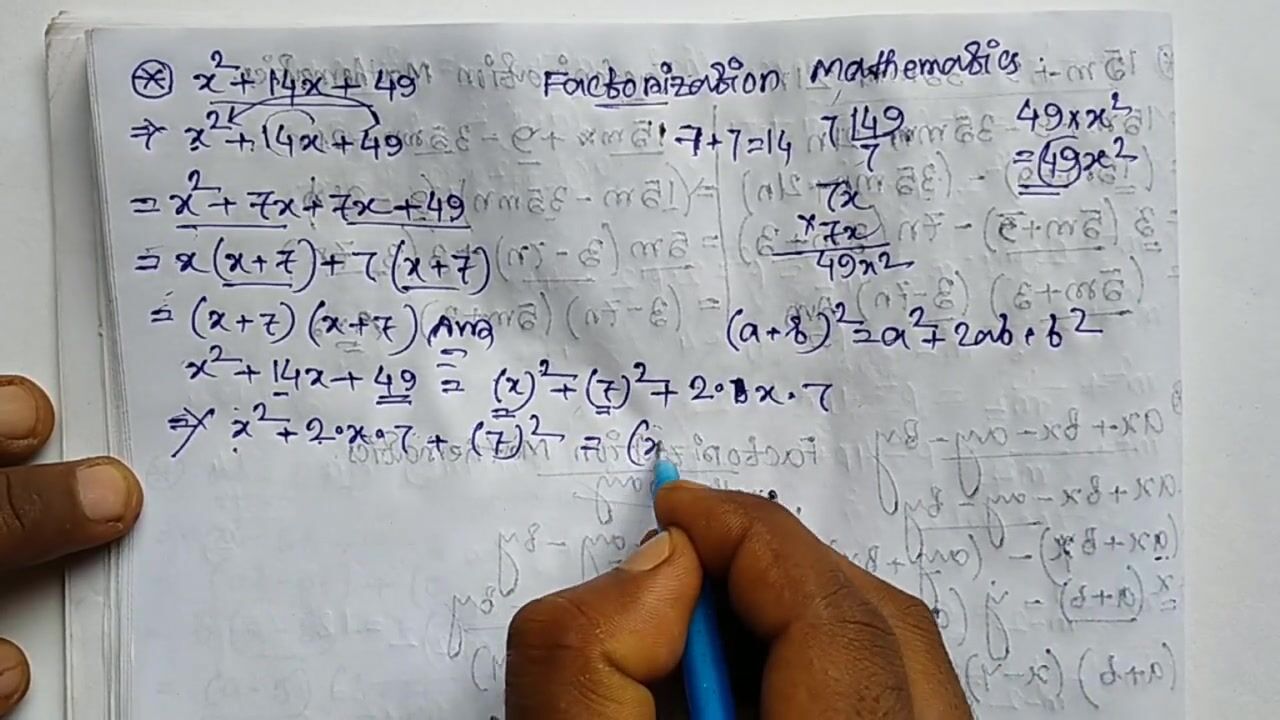 ⊛ x² + 14x + 49 Factorization Mathematics
⇒ x² + 14x + 49 7+7=14 7|49 49×x²
7 =49x²
= x² + 7x + 7x + 49 7x
×7x
= x(x+7) + 7(x+7) 49x²
= (x+7)(x+7) Ans (a+b)² = a² + 2ab + b²
x² + 14x + 49 = (x)² + (7)² + 2·x·7
⇒ x² + 2·x·7 + (7)² = (x